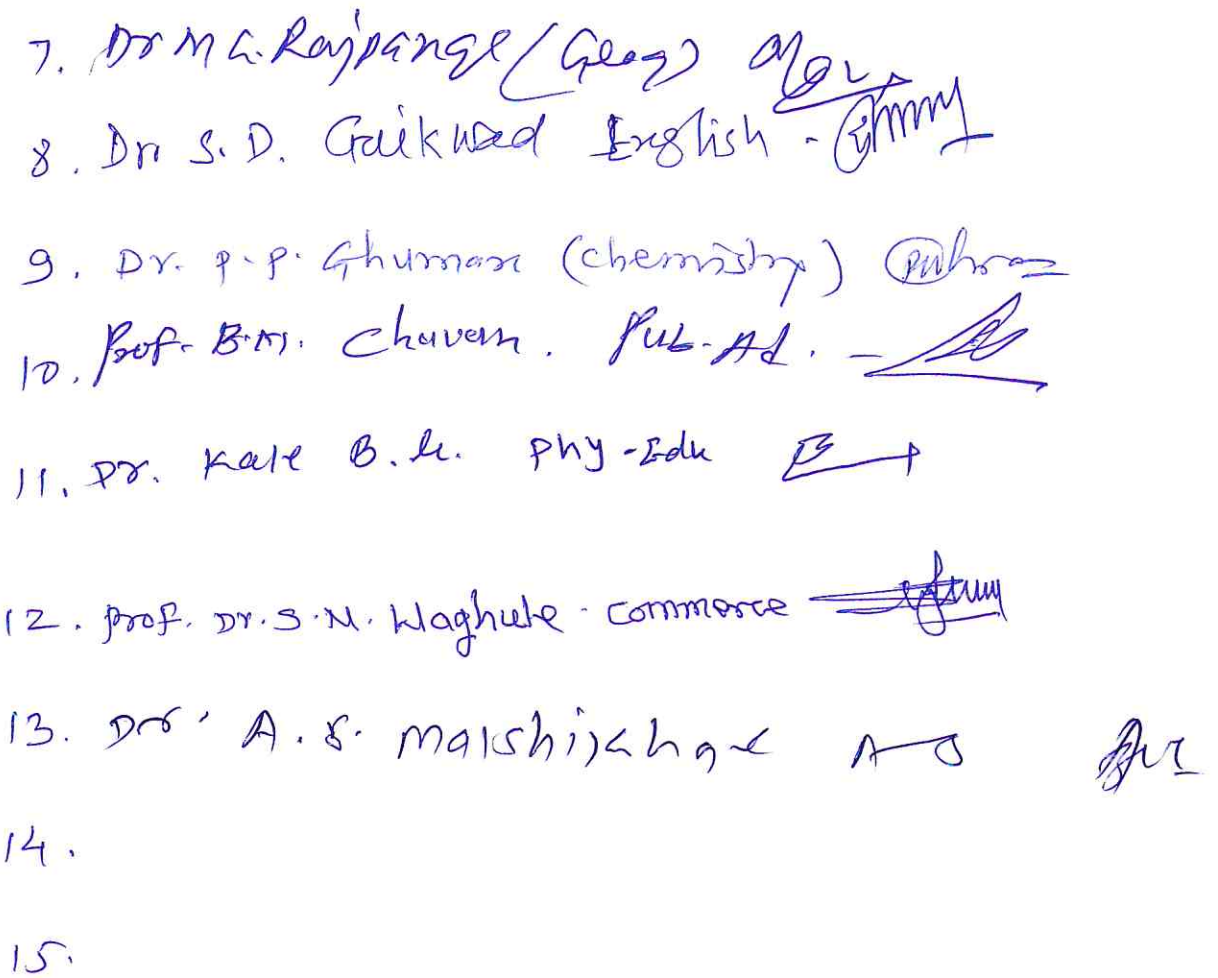 7. Dr M G. Rajpange (Geog)
8. Dr S. D. Gaikwad English -
9. Dr. P. P. Ghumare (chemistry)
10. Prof. B.M. Chavan. Pub. Ad. -
11. Dr. Kale B. K. Phy-Edu
12. Prof. Dr. S. N. Waghule - Commerce
13. Dr. A. S.
14.
15.